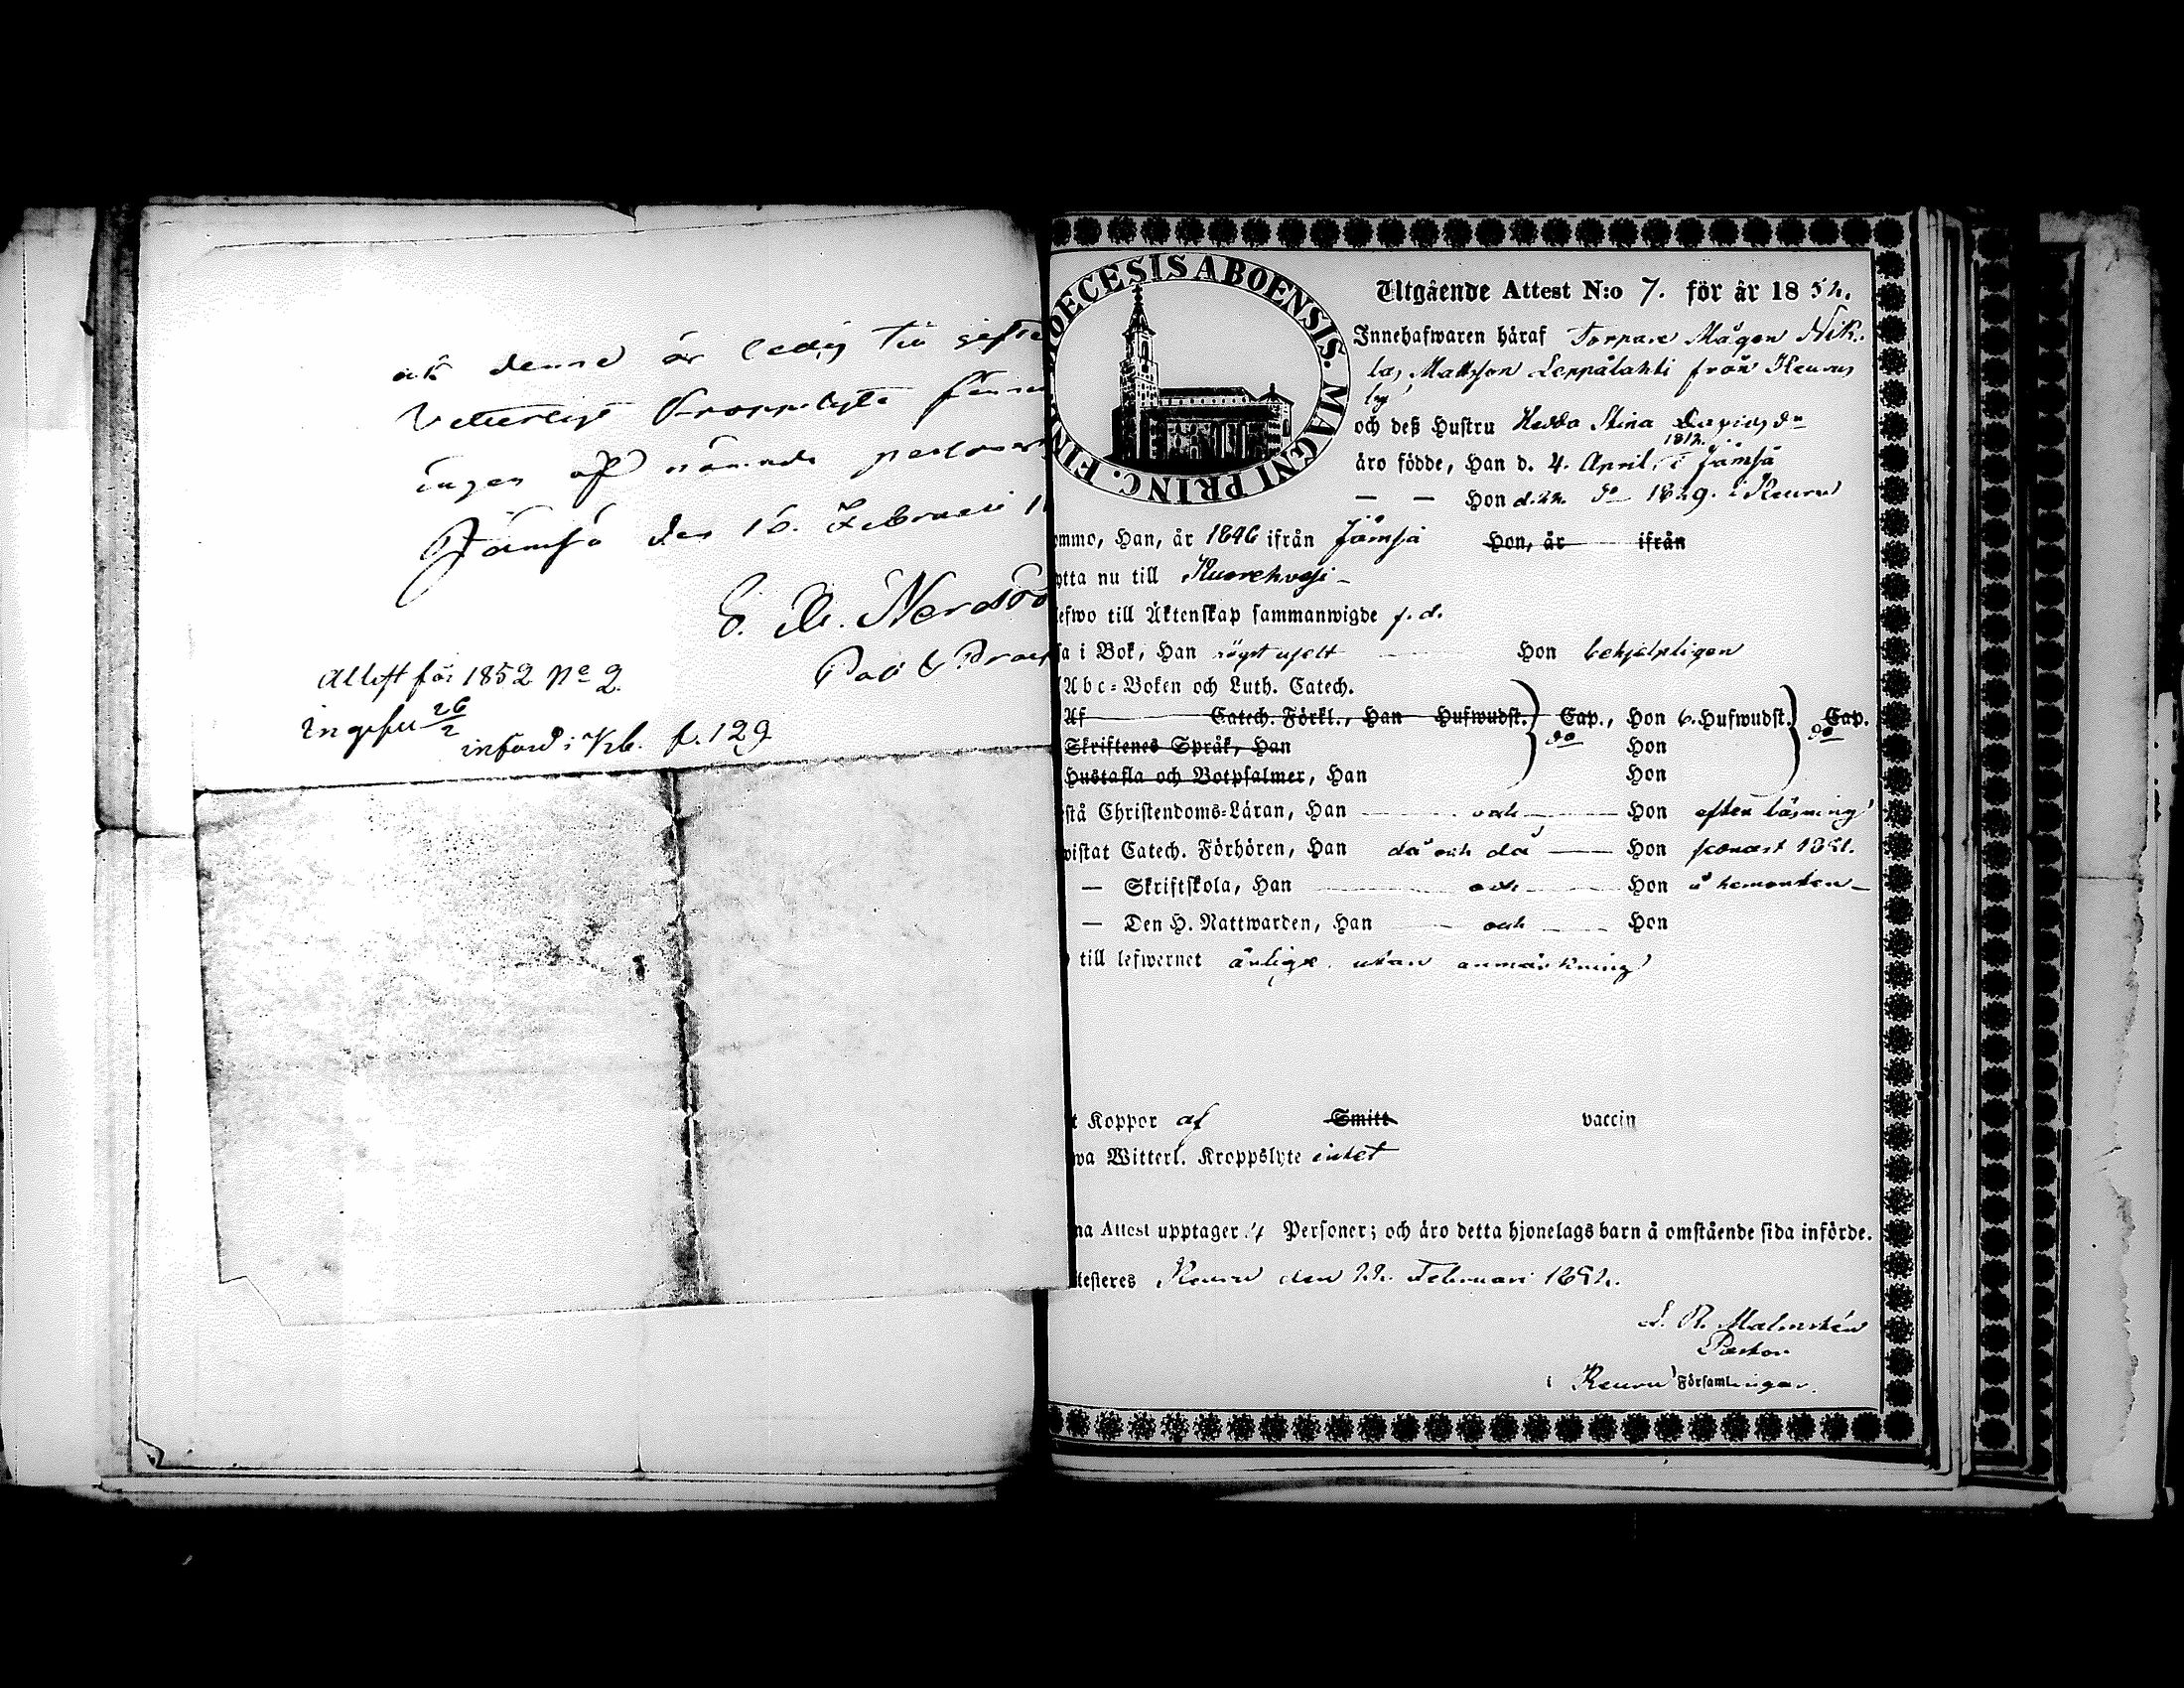 att denne är ledig till gifte
Vetterligt Kroppslyte finne
ingen af nämnde personer
Jämsä den 16. Februari 1
Attest för 1852 No 2.
ingifven 26/2
införd i Kb. p. 129
DIOECESIS ABOENSIS. MAGNI PRINC. FIN
Utgående Attest N:o 7. för år 1852.
Innehafwaren häraf Torpare Mågen Nik-
las Mattsson Leppälahti från Keuru
by
och deß Hustru Hedda Stina
1812.
äro födde, Han d. 4. April, i Jämsä
— — Hon d. 22. do 1829. i Keuru
ommo, Han, år 1846 ifrån Jämsä Hon, år ifrån
ytta nu till Kuorehvesi
lefwo till Äktenskap sammanwigde
sa i Bok, Han högst uselt Hon behjelpligen
Abc-Boken och Luth. Catech.
Af Catech. Förkl., Han Hufwudst. Cap., Hon 6. Hufwudst. Cap.
Skriftenes Språk, Han do Hon do
Hustafla och Botpsalmer, Han Hon
stå Christendoms-Läran, Han och Hon efter läsning
wistat Catech. Förhören, Han då och då Hon senast 1851.
— Skriftskola, Han och Hon å hemorten
— Den H. Nattwarden, Han och Hon
till lefwernet ärlige utan anmärkning
t Koppor af Smitt vaccin
wa Witterl. Kroppslyte intet
na Attest upptager 4 Personer; och äro detta hjonelags barn å omstående sida införde.
testeres Keuru den 22. Februari 1852.
Malmstén
Pastor
i Keuru Församlingar.